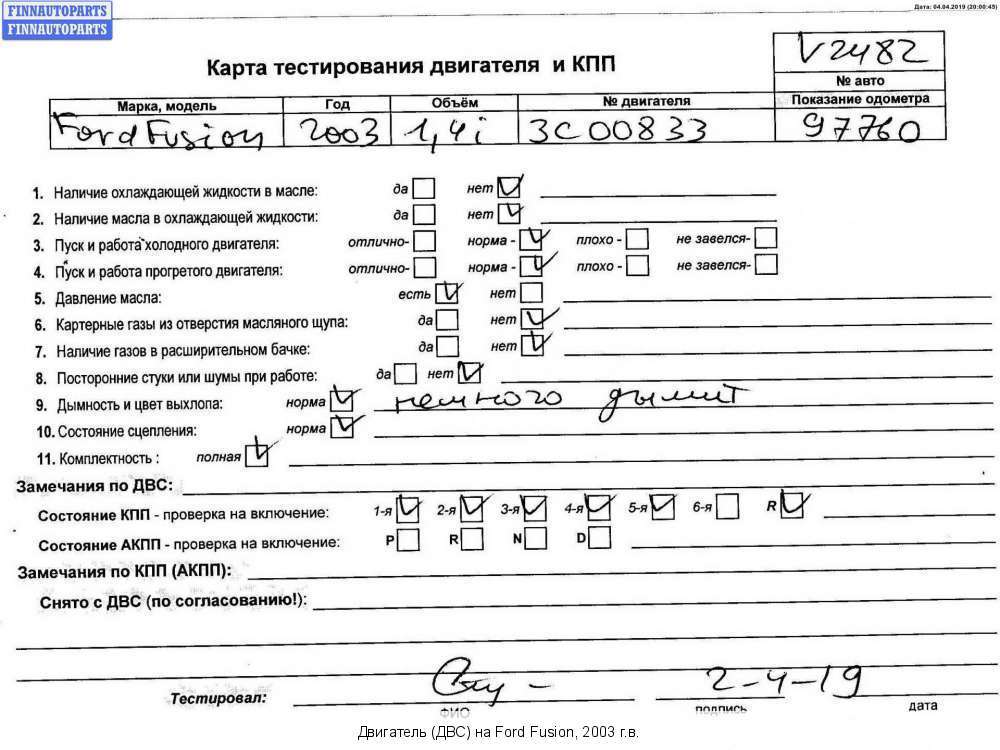 FINNAUTOPARTS
FINNAUTOPARTS
Дата: 04.04.2019 (20:00:45)
Карта тестирования двигателя и КПП
V2482
№ авто
Марка, модель Год Объём № двигателя Показание одометра
Ford Fusion 2003 1,4i 3C00833 97760
1. Наличие охлаждающей жидкости в масле: да нет
2. Наличие масла в охлаждающей жидкости: да нет
3. Пуск и работа холодного двигателя: отлично- норма - плохо - не завелся-
4. Пуск и работа прогретого двигателя: отлично- норма - плохо - не завелся-
5. Давление масла: есть нет
6. Картерные газы из отверстия масляного щупа: да нет
7. Наличие газов в расширительном бачке: да нет
8. Посторонние стуки или шумы при работе: да нет
9. Дымность и цвет выхлопа: норма немного дымит
10. Состояние сцепления: норма
11. Комплектность : полная
Замечания по ДВС:
Состояние КПП - проверка на включение: 1-я 2-я 3-я 4-я 5-я 6-я R
Состояние АКПП - проверка на включение: P R N D
Замечания по КПП (АКПП):
Снято с ДВС (по согласованию!):
Тестировал: 2-4-19
ФИО подпись дата
Двигатель (ДВС) на Ford Fusion, 2003 г.в.